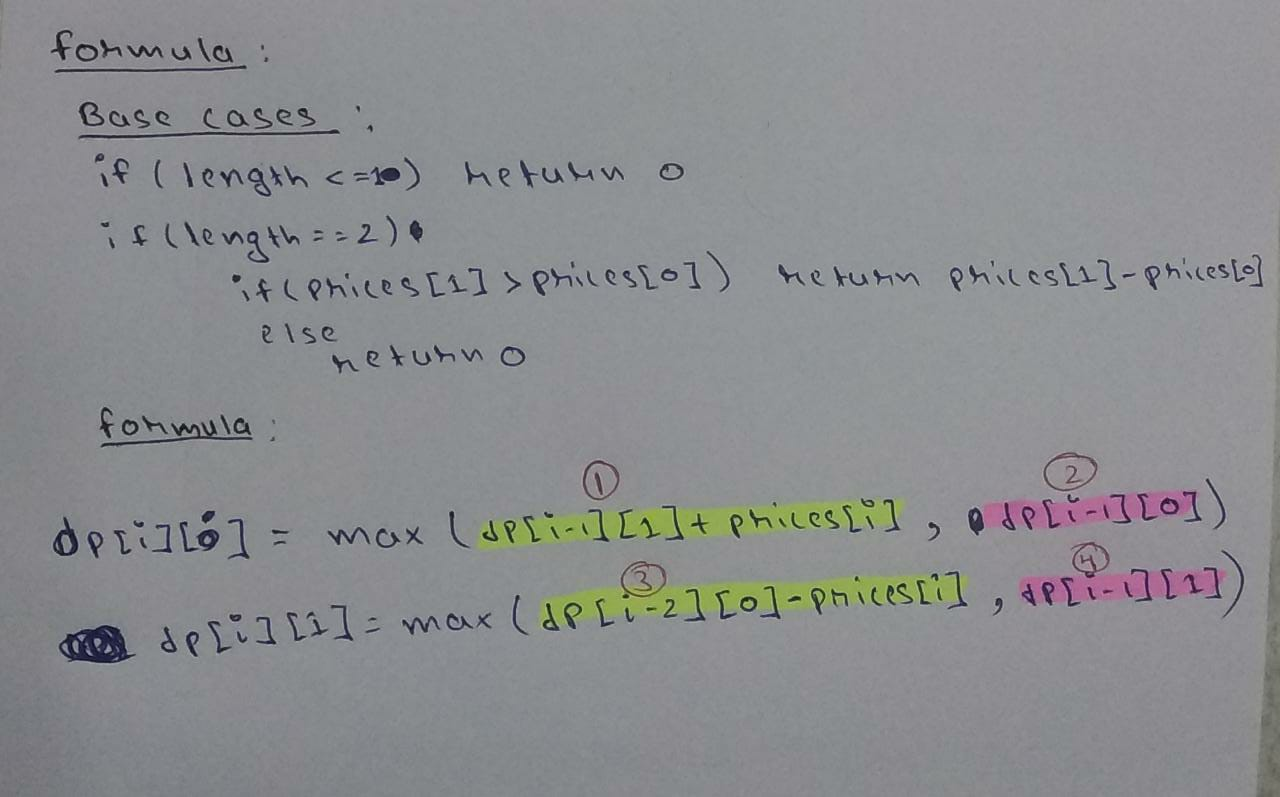 formula :
Base cases :
if ( length <=1) return 0
if (length==2)
if(prices[1] >prices[0]) return prices[1]-prices[0]
else
return 0
formula :
① ②
dp[i][0] = max (dp[i-1][1]+ prices[i] , dp[i-1][0])
③ ④
dp[i][1]= max (dp[i-2][0]-prices[i] , dp[i-1][1])